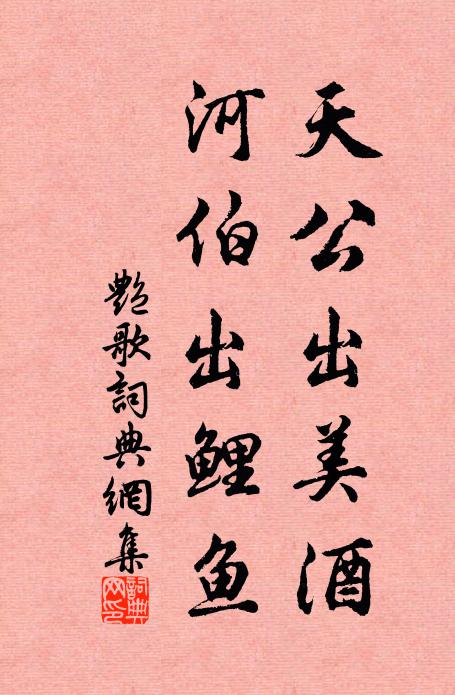 天公出美酒
河伯出鲤鱼
艷歌詞典網集
詞典
网印